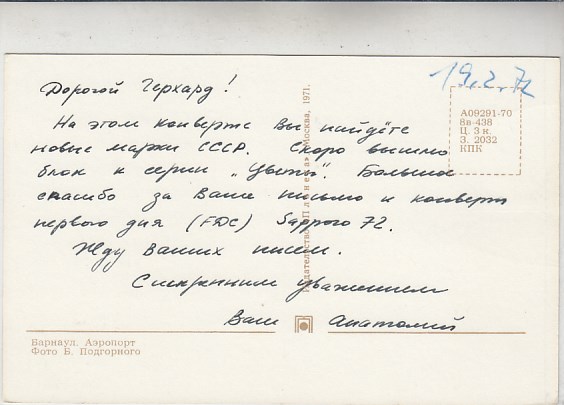 19.2.72
Дорогой Герхард!
На этом конверте Вы найдёте
новые марки СССР. Скоро вышлю
блок к серии „Цветы". Большое
спасибо за Ваше письмо и конверт
первого дня (FDC) Sapporo 72.
Жду Ваших писем.
С искренним уважением
Ваш Анатолий
А09291-70
8в-438
Ц. 3 к.
З. 2032
КПК
Издательство «Планета» Москва, 1971.
Барнаул. Аэропорт
Фото Б. Подгорного